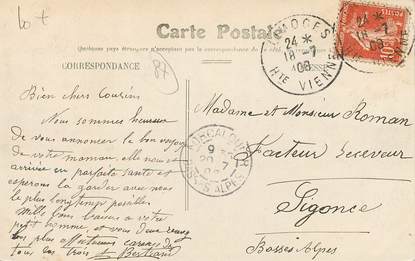 Carte Postale
CORRESPONDANCE
LIMOGES
24 *
18 - 7
08
Hte VIENNE
Bien chers Cousins
Nous sommes heureux
de vous annoncer le bon voyage
de votre maman, elle nous est
arrivée en parfaite santé et
espérons la garder avec nous
le plus longtemps possible.
Mille bons baisers à votre
petit homme, et vous deux recevez
nos plus affectueuses caresses de
tous les trois Bertrand
FORCALQUIER
9
20 - 7
08
BASSES ALPES
Madame et Monsieur Roman
Facteur Receveur
Sigonce
Basses Alpes